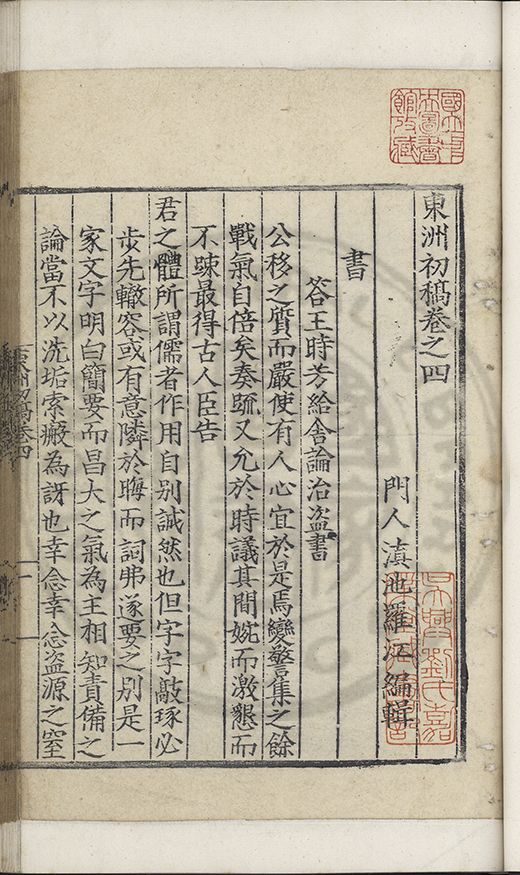 東洲初稿卷之四
門人滇池羅江編輯
書
答王時芳給舍論治盜書
公移之質而嚴使有人心宜於是焉變警集之餘
戰氣自倍矣奏疏又允於時議其間婉而激懇而
不踈最得古人臣告
君之體所謂儒者作用自别誠然也但字字敲琢必
步先轍容或有意隣於晦而詞弗遂要之别是一
家文字明白簡要而昌大之氣為王相知責備之
論當不以洗垢索瘢為訝也幸念幸念盜源之窒
東洲初稿卷四
國立中央圖書館收藏
吳興劉氏嘉業堂藏書記